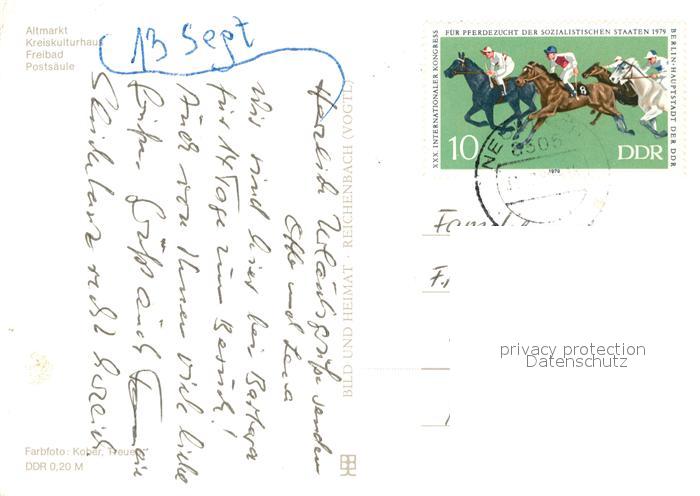 Altmarkt
Kreiskulturhaus
Freibad
Postsäule
13 Sept
Herzliche Urlaubsgrüße senden
Otto und Lena
Wir sind hier bei Barbara
für 14 Tage zum Besuch!
Auch von Ihnen viele liebe
Grüße. Grüßt auch
recht herzlich
Farbfoto: Kober, Treuen
DDR 0,20 M
BILD UND HEIMAT · REICHENBACH (VOGTL)
XXX. INTERNATIONALER KONGRESS FÜR PFERDEZUCHT DER SOZIALISTISCHEN STAATEN 1979
BERLIN-HAUPTSTADT DER DDR
8
10 DDR
1979
privacy protection
Datenschutz